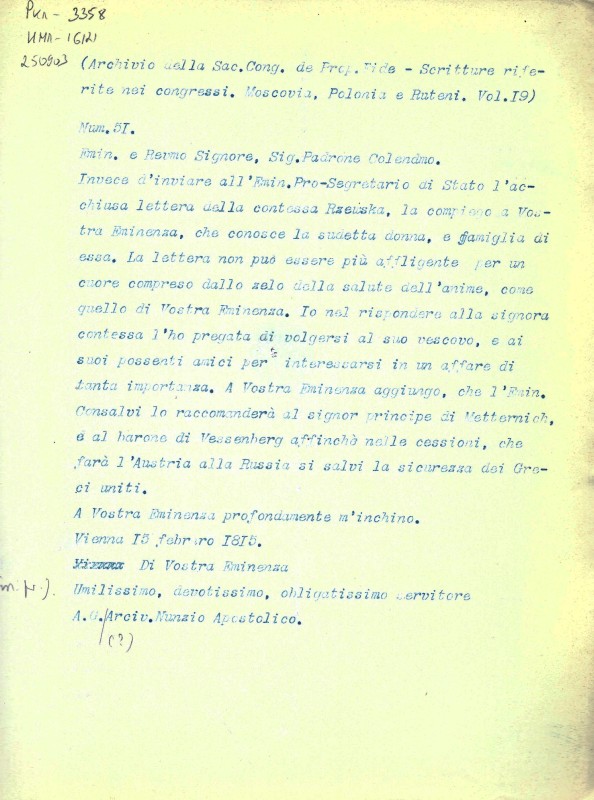 Ркл - 3358
ИМЛ - 16121
250903
(Archivio della Sac.Cong. de Prop.Fide - Scritture rife-
rite nei congressi. Moscovia, Polonia e Ruteni. Vol.I9)
Num.5I.
Emin. e Revmo Signore, Sig.Padrone Colendmo.
Invece d'inviare all'Emin.Pro-Segretario di Stato l'ac-
chiusa lettera della contessa Rzewska, la compiego a Vos-
tra Eminenza, che conosce la sudetta donna, e famiglia di
essa. La lettera non può essere più affligente per un
cuore compreso dallo zelo della salute dell'anime, come
quello di Vostra Eminenza. Io nel rispondere alla signora
contessa l'ho pregata di volgersi al suo vescovo, e ai
suoi possenti amici per interessarsi in un affare di
tanta importanza. A Vostra Eminenza aggiungo, che l'Emin.
Consalvi lo raccomanderà al signor principe di Metternich,
e al barone di Vessenberg affinchò nelle cessioni, che
farà l'Austria alla Russia si salvi la sicurezza dei Gre-
ci uniti.
A Vostra Eminenza profondamente m'inchino.
Vienna I5 febraro I8I5.
Di Vostra Eminenza
m.p.). Umilissimo, devotissimo, obligatissimo servitore
A.G./Arciv.Nunzio Apostolico.
(?)